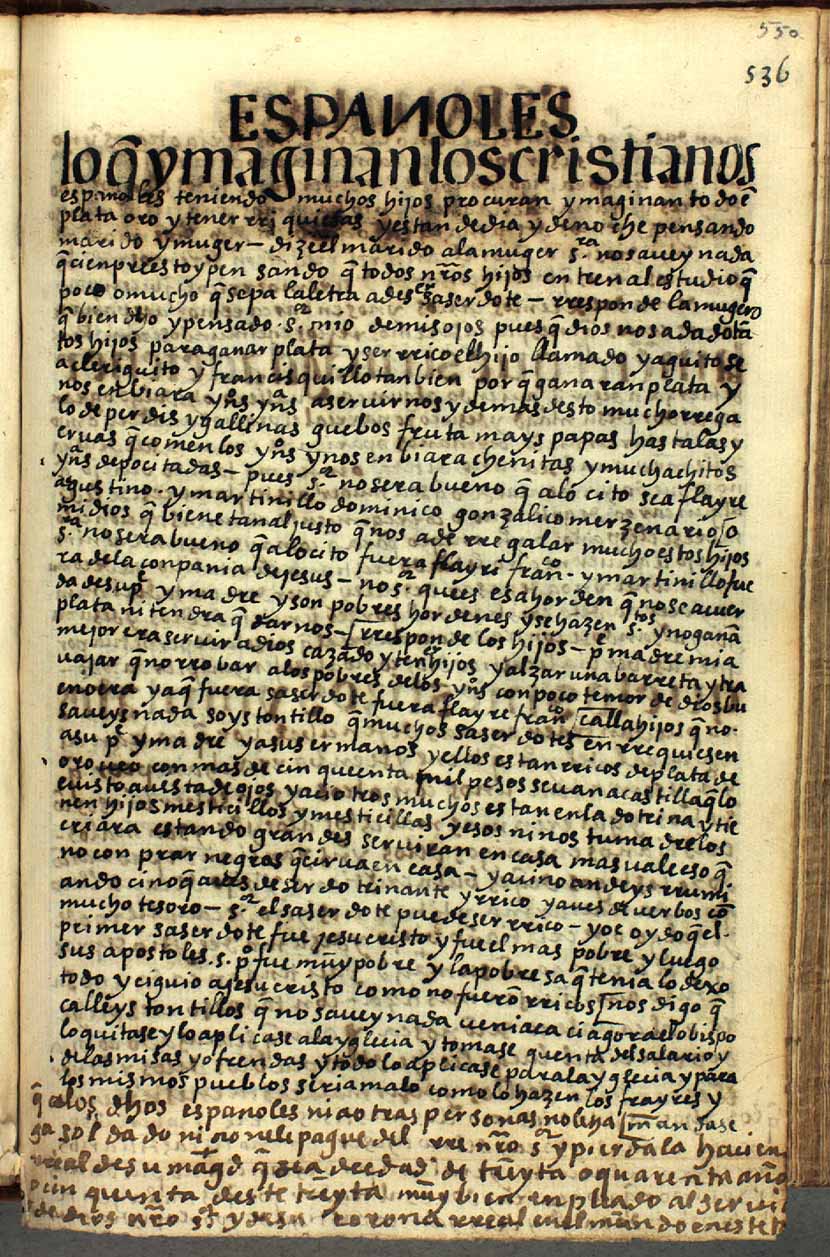 550
536
ESPAÑOLES
lo q̃ ymaginan los cristianos
españoles teniendo muchos hijos procuran ymaginan todo ẽ
plata oro y tener rriquiesas y estan de dia y de noche pensando
marido y muger – dize el marido a la muger s.ra no saueys nada
q̃ cienpre estoy pensando q̃ todos nr̃os hijos entren al estudio q̃
poco o mucho q̃ sepa la letra a de ser saserdote – rresponde la muger
q̃ bien dho y pensado s.r mio de mis ojos pues q̃ dios nos a dado tã
tos hijos para ganar plata y ser rrico el hijo llamado yaguito se
a cleriguito y francisquillo tanbien por q̃ ganaran plata y
nos enbiara yñs yñs a servirnos y demas desto mucho rrega
lo de perdis y gallenas guebos fruta mays papas hasta las y
eruas q̃ comen los yños y nos enbiara chenitas y muchachitos
yñs depocitadas – pues s.r no sera bueno q̃ alocito sea flayre
agustino y martinillo dominico gonzalico merzenario [o
mi dios q̃ biene tan al justo q̃ nos a de rregalar mucho estos hijos
s.ra no sera bueno q̃ alocito fuera flayri fran.co y martinillo fue
ra de la conpania de jesus – no s.r que es esa horden q̃ no se acuer
da de su p.e y madre y son pobres hordenes y se hazen s.tos y no ganã
plata ni tendra q̃ darnos – [rresponde los hijos – p.e madre mia
mejor era servir a dios cazado y tener hijos y alzar una barreta y tra
uajar q̃ no rrobar a los pobres de los yños con poco temor de dios bu
eno era ya q̃ fuera saserdote fuera flayre fran.co [calla hijos q̃ no
saueys nada soys tontillo q̃ muchos saserdotes enrrequiesen
a su p.e y madre y a sus ermanos y ellos estan rricos de plata de
oro ueo con mas de cinqueenta mil pesos se uan a castilla q̃ lo
e uisto a uista de ojos y a cio tros muchos estan en la dotrina y tie
nen hijos mesticillos y mesticillas y esos ninos tu madre los
criara estando grandes serviran en casa mas vale eso q̃
no conprar negros q̃ cirua en casa – y a ci no andeys rrumi
ando cino q̃ aues de ser dotrinante y rrico y aues de uerbos cõ
mucho tesoro – s.r el saserdote puede ser rrico – yo e oydo q̃ el
primer saserdote fue jesucristo y fue el mas pobre y luego
sus apostoles s. p.o fue muy pobre y la pobresa q̃ tenia lo dexo
todo y ciguio a jesucristo como no fuerõ rricos [nos digo q̃
calleys tontillos q̃ no saueys nada venia a ci agora el obispo
lo quitase y lo aplicase a la yglecia y tomase quenta del salario y
de las misas y ofrendas y todo lo aplicase para la yglecia y para
los mismos pueblos seria malo como lo hazen los frayres y
q̃ a los dhos espanoles ni a otras personas no le ha [mandase
ga soldado ni no nele pague del rre nr̃o s.r y pierda la hacien
rreal de su mag.d q̃ sea de edad de treyta o quarenta año
cinquenta deste treyta muy bien enpleado al servi
de dios nr̃o s.r y de su corona rreal en el mundo en este